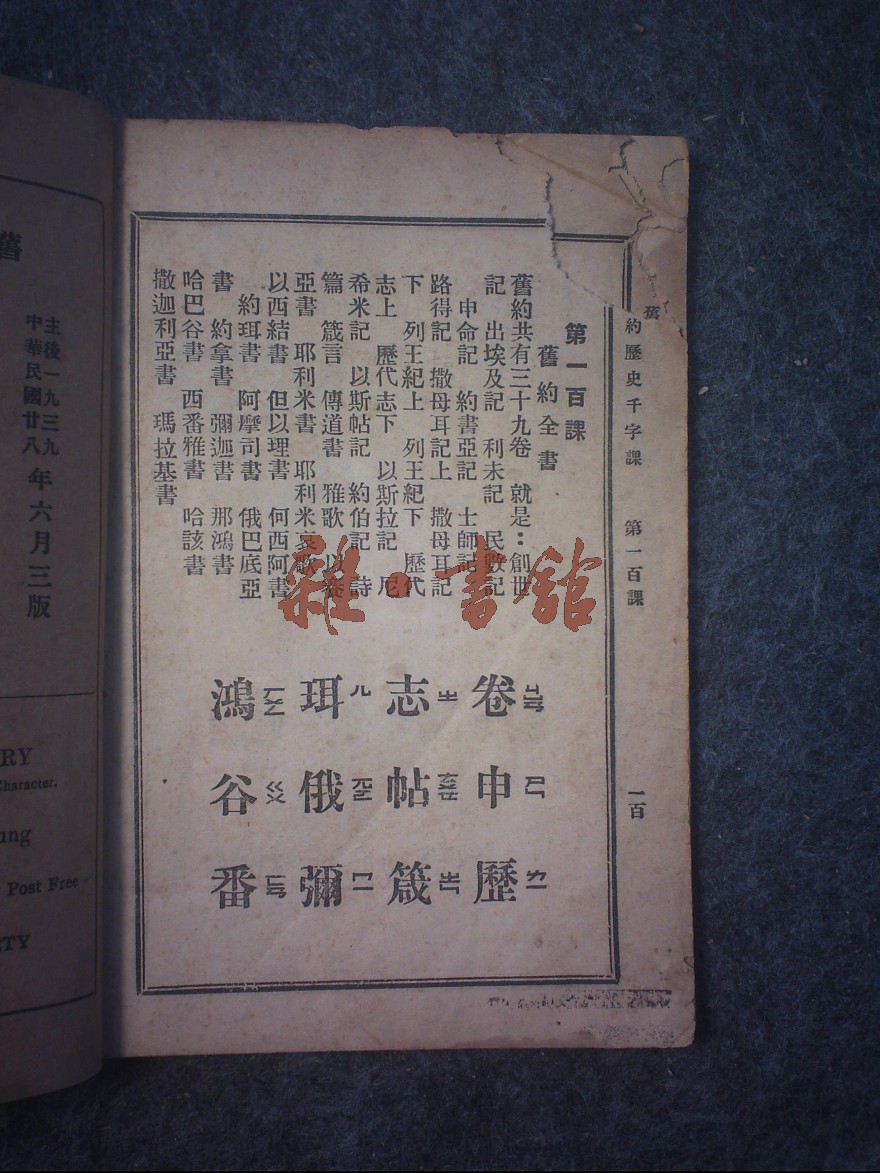 舊約歷史千字課 第一百課 一百
第一百課
舊約全書
舊約共有三十九卷 就是：創世
記 出埃及記 利未記 民數記
申命記 約書亞記 士師記
路得記 撒母耳記上 撒母耳記
下 列王紀上 列王紀下 歷代
志上 歷代志下 以斯拉記 尼
希米記 以斯帖記 約伯記 詩
篇 箴言 傳道書 雅歌 以賽
亞書 耶利米書 耶利米哀歌
以西結書 但以理書 何西阿書
約珥書 阿摩司書 俄巴底亞
書 約拿書 彌迦書 那鴻書
哈巴谷書 西番雅書 哈該書
撒迦利亞書 瑪拉基書
卷 申 歷
志 帖 箴
珥 俄 彌
鴻 谷 番
雜·書館
舊
主後一九三九
中華民國廿八
年六月三版
RY
Character.
ung
Post Free
ETY